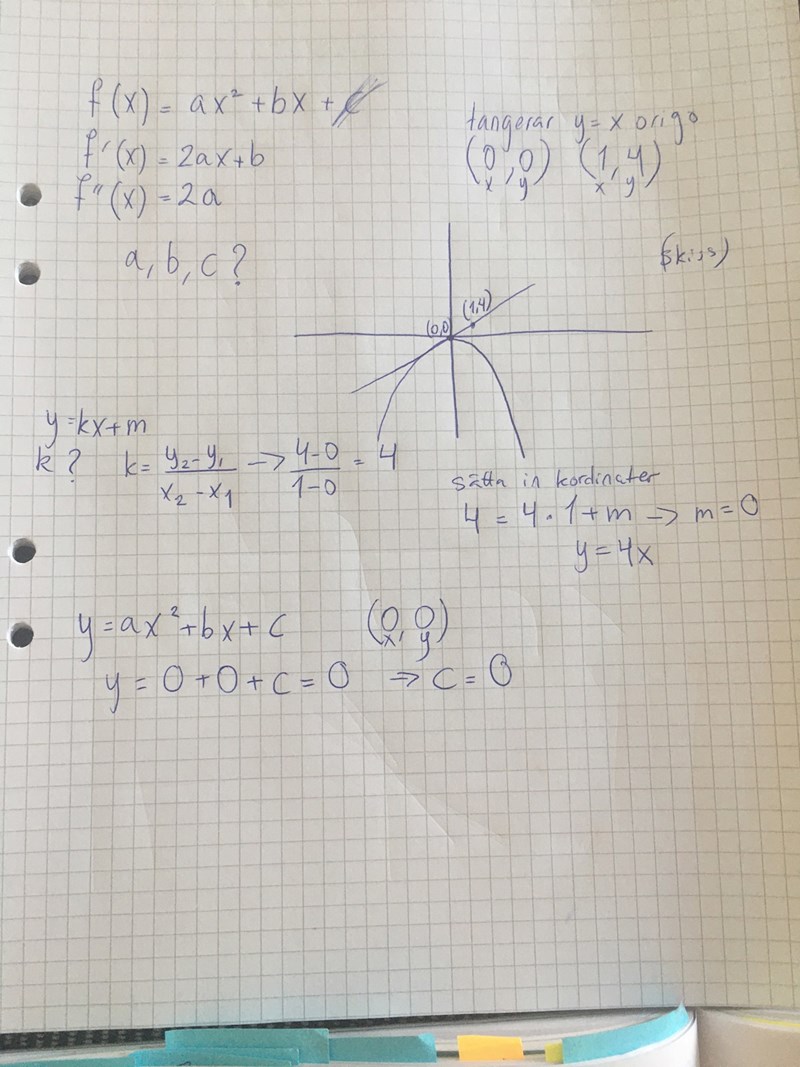 f(x) = ax² + bx + c
f'(x) = 2ax+b
f''(x) = 2a
a, b, c ?
tangerar y = x origo
(0, 0) (1, 4)
x y x y
(skiss)
(1,4)
(0,0)
y = kx+m
k ? k = (y₂-y₁)/(x₂-x₁) → (4-0)/(1-0) = 4
sätta in kordinater
4 = 4 · 1 + m → m = 0
y = 4x
y = ax² + bx + c (0, 0)
x, y
y = 0 + 0 + c = 0 ⇒ c = 0